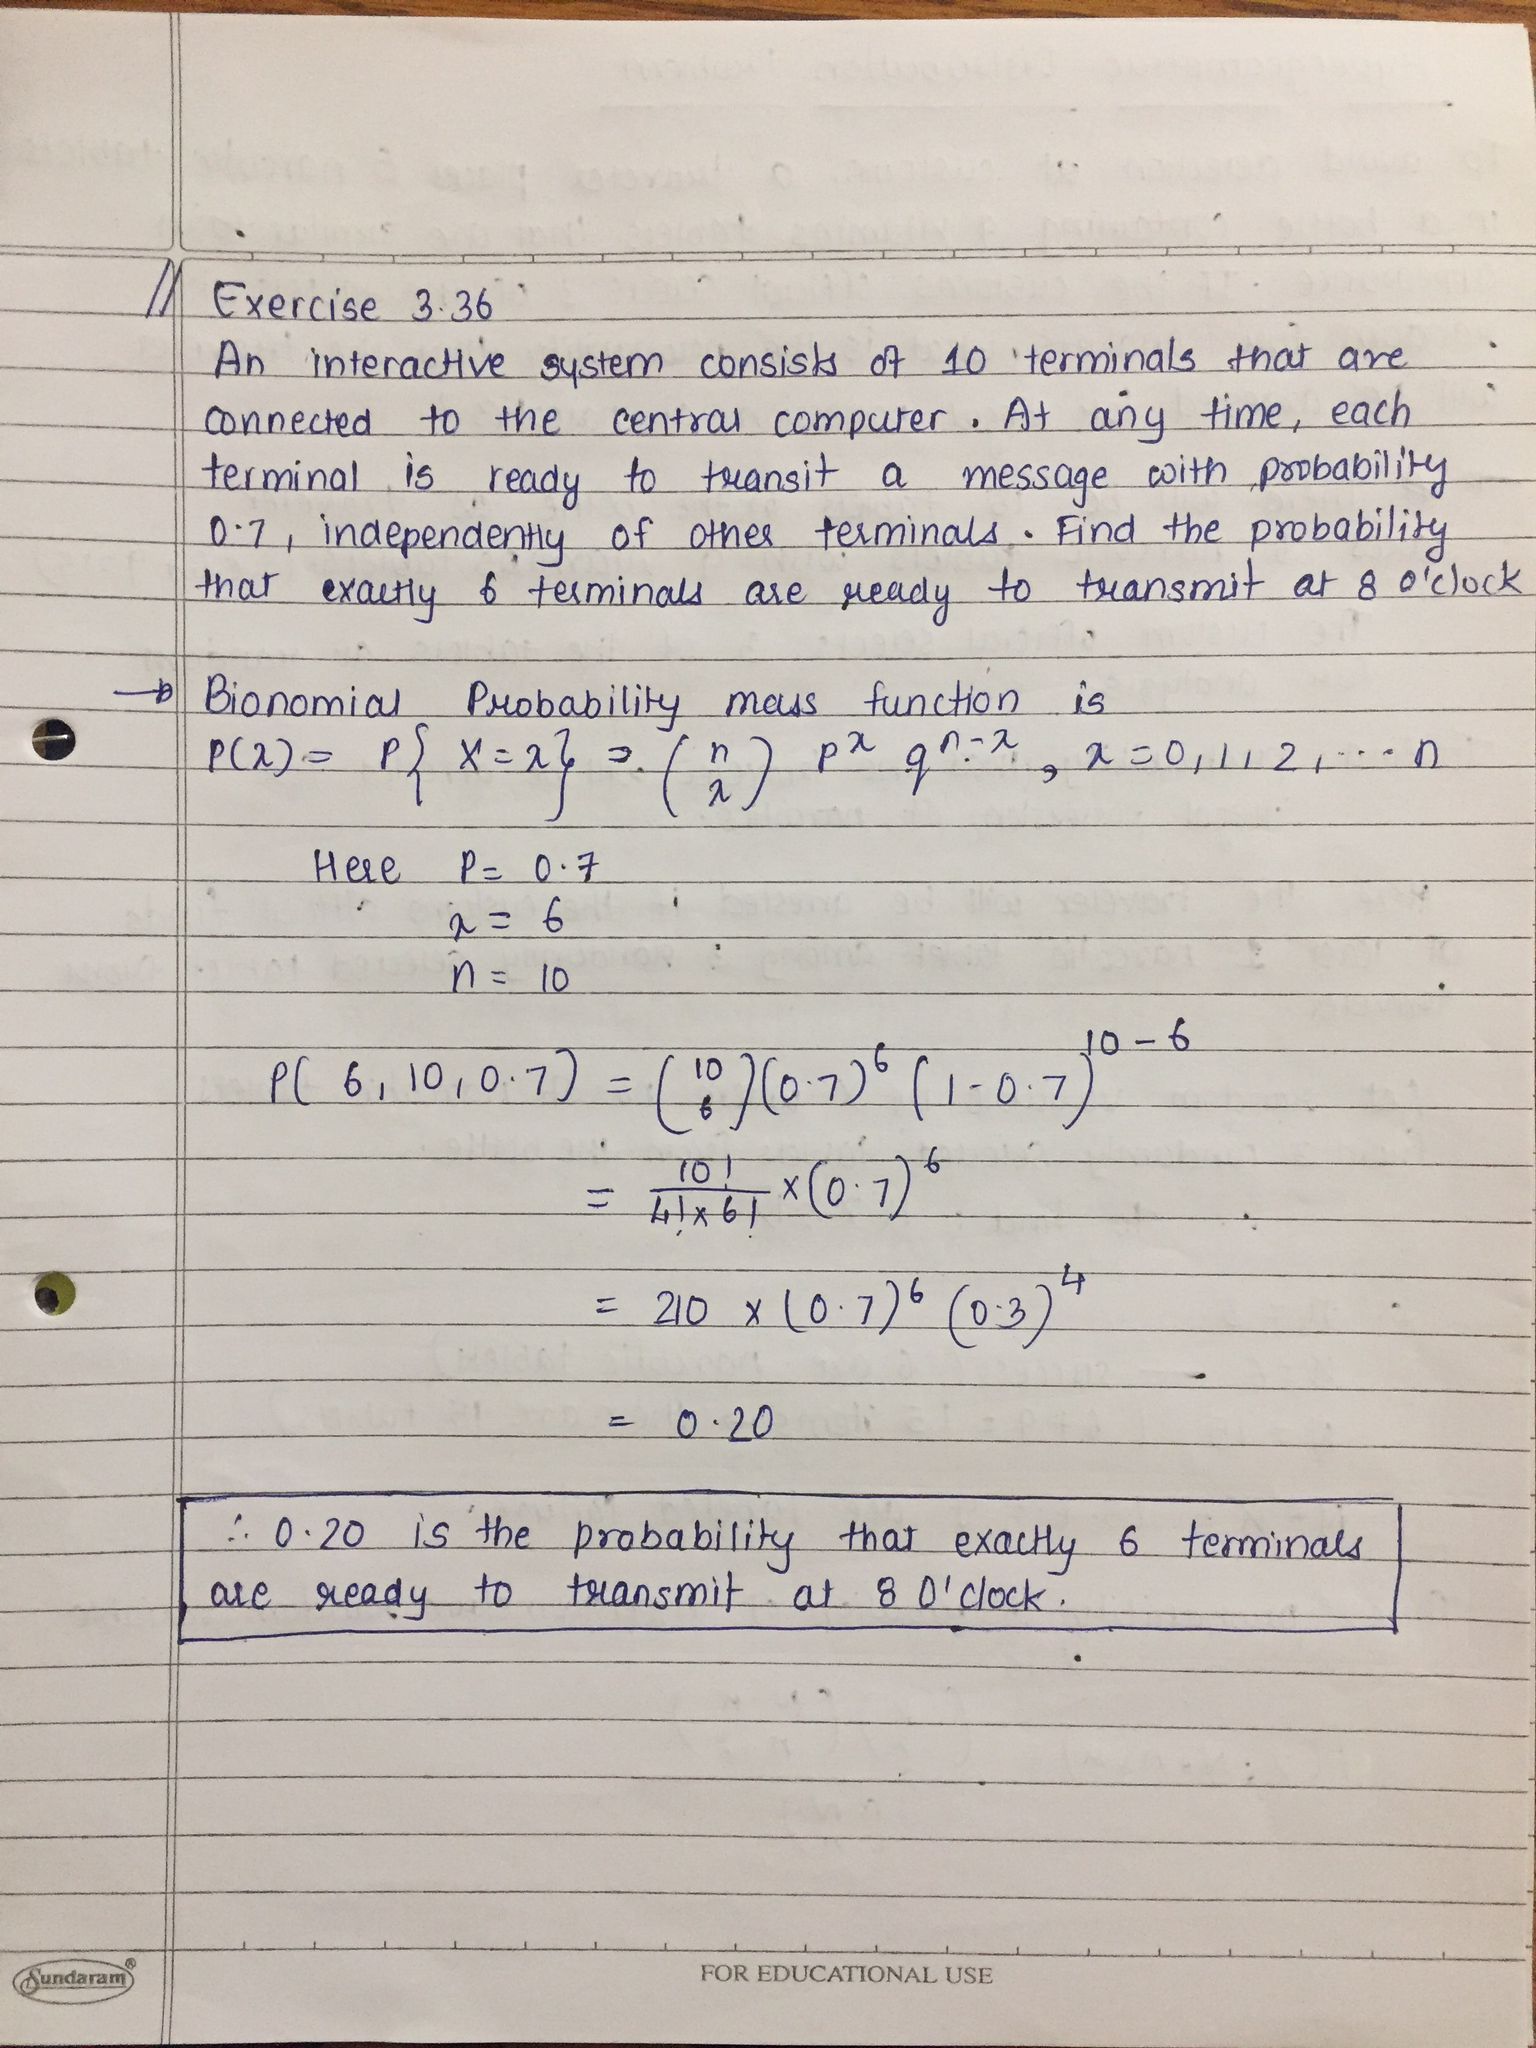 Exercise 3.36
An interactive system consists of 10 terminals that are
connected to the central computer. At any time, each
terminal is ready to transit a message with probability
0.7, independently of other terminals. Find the probability
that exactly 6 terminals are ready to transmit at 8 o'clock
→ Bionomial Probability mass function is
P(x) = P{ X = x } = (n x) p^x q^(n-x), x = 0, 1, 2, ... n
Here P = 0.7
x = 6
n = 10
P( 6, 10, 0.7) = (10 6)(0.7)^6 (1-0.7)^(10-6)
= 10!/(4! x 6!) x (0.7)^6
= 210 x (0.7)^6 (0.3)^4
= 0.20
∴ 0.20 is the probability that exactly 6 terminals
are ready to transmit at 8 O'clock.
Sundaram®
FOR EDUCATIONAL USE